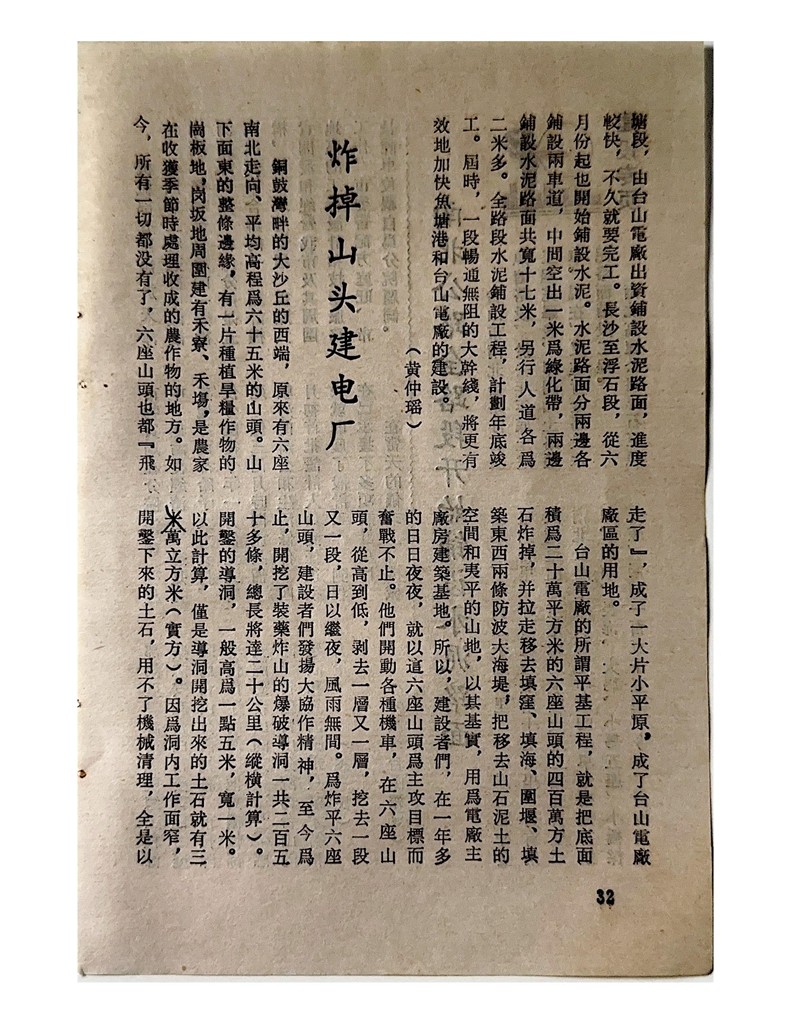 塘段，由台山電廠出資鋪設水泥路面，進度
較快，不久就要完工。長沙至浮石段，從六
月份起也開始鋪設水泥。水泥路面分兩邊各
鋪設兩車道，中間空出一米爲綠化帶，兩邊
鋪設水泥路面共寬十七米，另行人道各爲
二米多。全路段水泥鋪設工程，計劃年底竣
工。屆時，一段暢通無阻的大幹綫，將更有
效地加快魚塘港和台山電廠的建設。
（黄仲瑶）
炸掉山头建电厂
銅鼓灣畔的大沙丘的西端，原來有六座
南北走向、平均高程爲六十五米的山頭。山
下面東的整條邊緣，有一片種植旱糧作物的
崗板地，岗坂地周圍建有禾寮、禾塲，是農家
在收獲季節時處理收成的農作物的地方。如
今，所有一切都没有了，六座山頭也都『飛
走了』，成了一大片小平原，成了台山電廠
廠區的用地。
台山電廠的所謂平基工程，就是把底面
積爲二十萬平方米的六座山頭的四百萬方土
石炸掉，并拉走移去填窪、填海、圍堰、填
築東西兩條防波大海堤，把移去山石泥土的
空間和夷平的山地，以其基實，用爲電廠主
廠房建築基地。所以，建設者們，在一年多
的日日夜夜，就以這六座山頭爲主攻目標而
奮戰不止。他們開動各種機車，在六座山
頭，從高到低，剥去一層又一層，挖去一段
又一段，日以繼夜，風雨無間。爲炸平六座
山頭，建設者們發揚大協作精神，至今爲
止，開挖了裝藥炸山的爆破導洞一共二百五
十多條，總長將達二十公里（縱横計算）。
開鑿的導洞，一般高爲一點五米，寬一米。
以此計算，僅是導洞開挖出來的土石就有三
萬立方米（實方）。因爲洞内工作面窄，
開鑿下來的土石，用不了機械清理，全是以
32